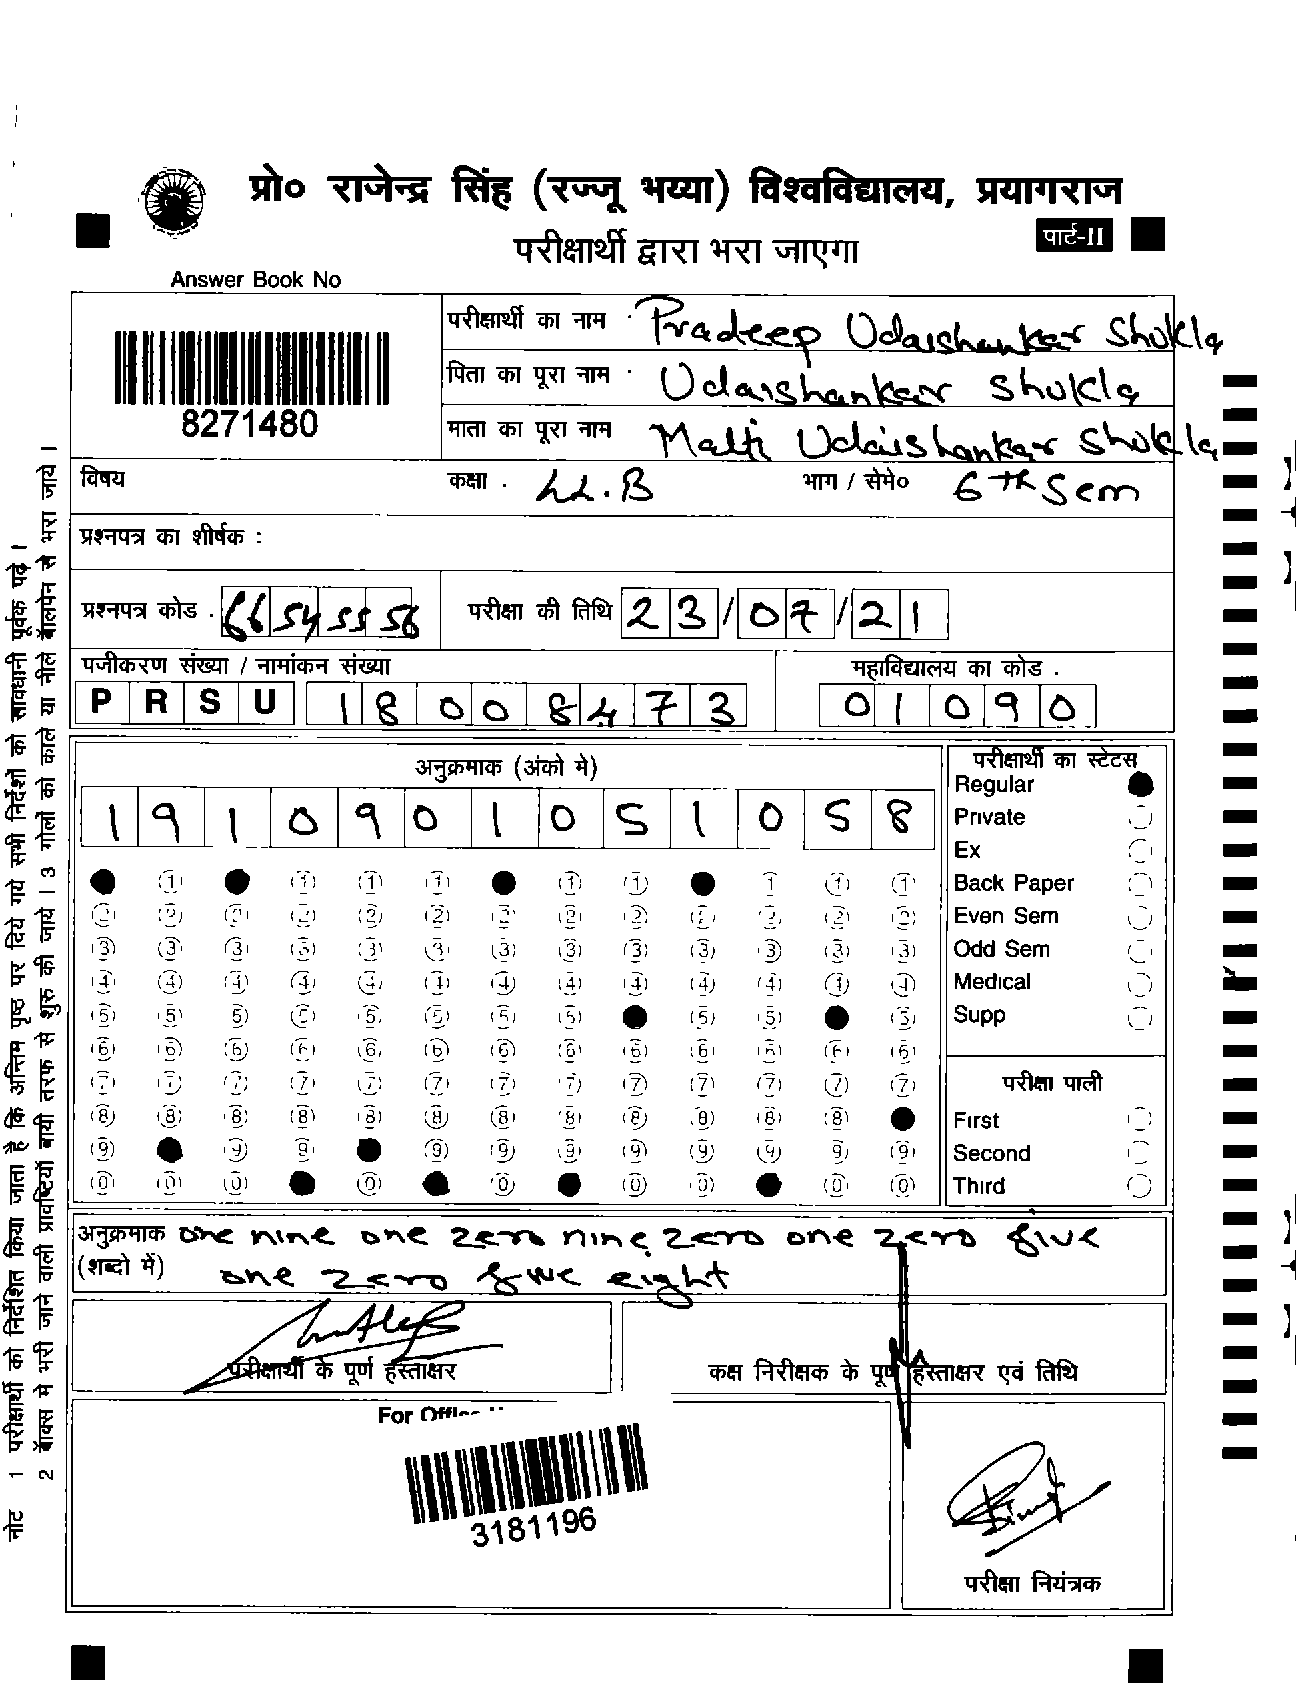 प्रो० राजेन्द्र सिंह (रज्जू भय्या) विश्वविद्यालय, प्रयागराज
परीक्षार्थी द्वारा भरा जाएगा
पार्ट-II
Answer Book No
8271480
परीक्षार्थी का नाम Pradeep Udaishankar Shukla
पिता का पूरा नाम Udaishankar Shukla
माता का पूरा नाम Malti Udaishankar Shukla
विषय कक्षा LL.B भाग / सेमे० 6th Sem
प्रश्नपत्र का शीर्षक :
प्रश्नपत्र कोड 66 54 55 56 परीक्षा की तिथि 23/07/21
पजीकरण संख्या / नामांकन संख्या महाविद्यालय का कोड
P R S U 1 8 0 0 8 4 7 3 0 1 0 9 0
अनुक्रमाक (अंको मे)
1 9 1 0 9 0 1 0 5 1 0 5 8
1 1 1 1 1 1 1 1 1
2 2 2 2 2 2 2 2 2 2 2 2 2
3 3 3 3 3 3 3 3 3 3 3 3 3
4 4 4 4 4 4 4 4 4 4 4 4 4
5 5 5 5 5 5 5 5 5 5 5
6 6 6 6 6 6 6 6 6 6 6 6 6
7 7 7 7 7 7 7 7 7 7 7 7 7
8 8 8 8 8 8 8 8 8 8 8 8
9 9 9 9 9 9 9 9 9 9 9
0 0 0 0 0 0 0 0 0
परीक्षार्थी का स्टेटस
Regular
Private
Ex
Back Paper
Even Sem
Odd Sem
Medical
Supp
परीक्षा पाली
First
Second
Third
अनुक्रमाक one nine one zero nine zero one zero five
(शब्दो में) one zero five eight
परीक्षार्थी के पूर्ण हस्ताक्षर कक्ष निरीक्षक के पूर्ण हस्ताक्षर एवं तिथि
For Office
3181196
परीक्षा नियंत्रक
नोट 1 परीक्षार्थी को निर्देशित किया जाता है कि अन्तिम पृष्ठ पर दिये गये सभी निर्देशों को सावधानी पूर्वक पढ़े ।
2 बॅाक्स मे भरी जाने वाली प्राविष्टियों बायी तरफ से शुरु की जाये । 3 गोलों को काले या नीले बॅालपेन से भरा जाये ।